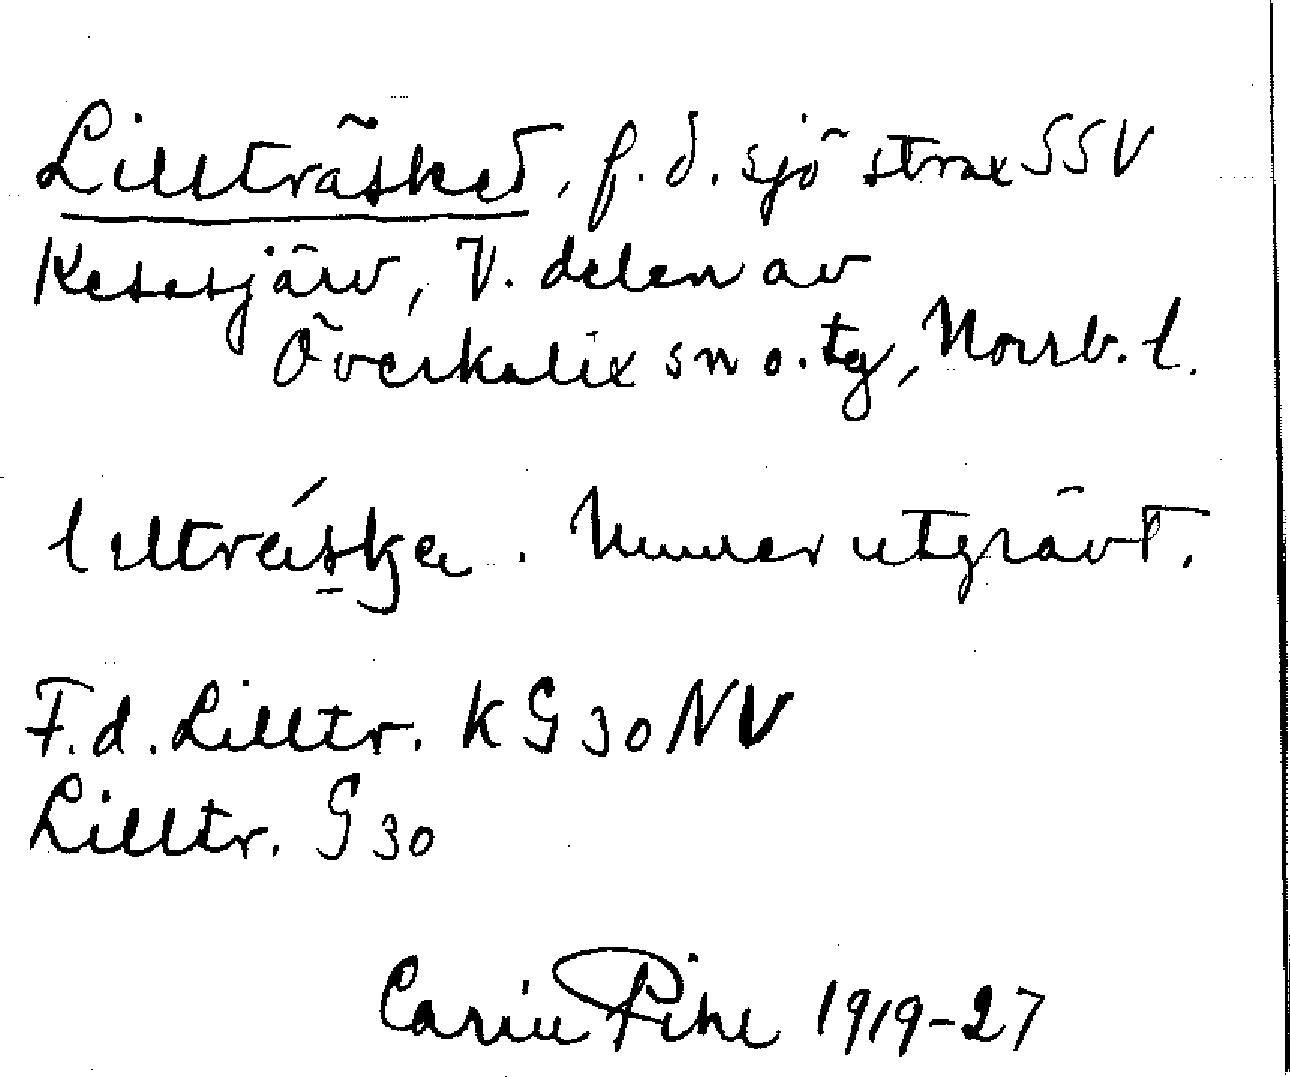 Lillträsket, f. d. sjö strax SSV
Kesasjärv, V. delen av
Överkalix sn o. tg, Norrb. l.
lıltrǽska. Numer utgrävt.
F. d. Lilltr. K G 30 NV
Lilltr. G 30
Carin Pihl 1919-27